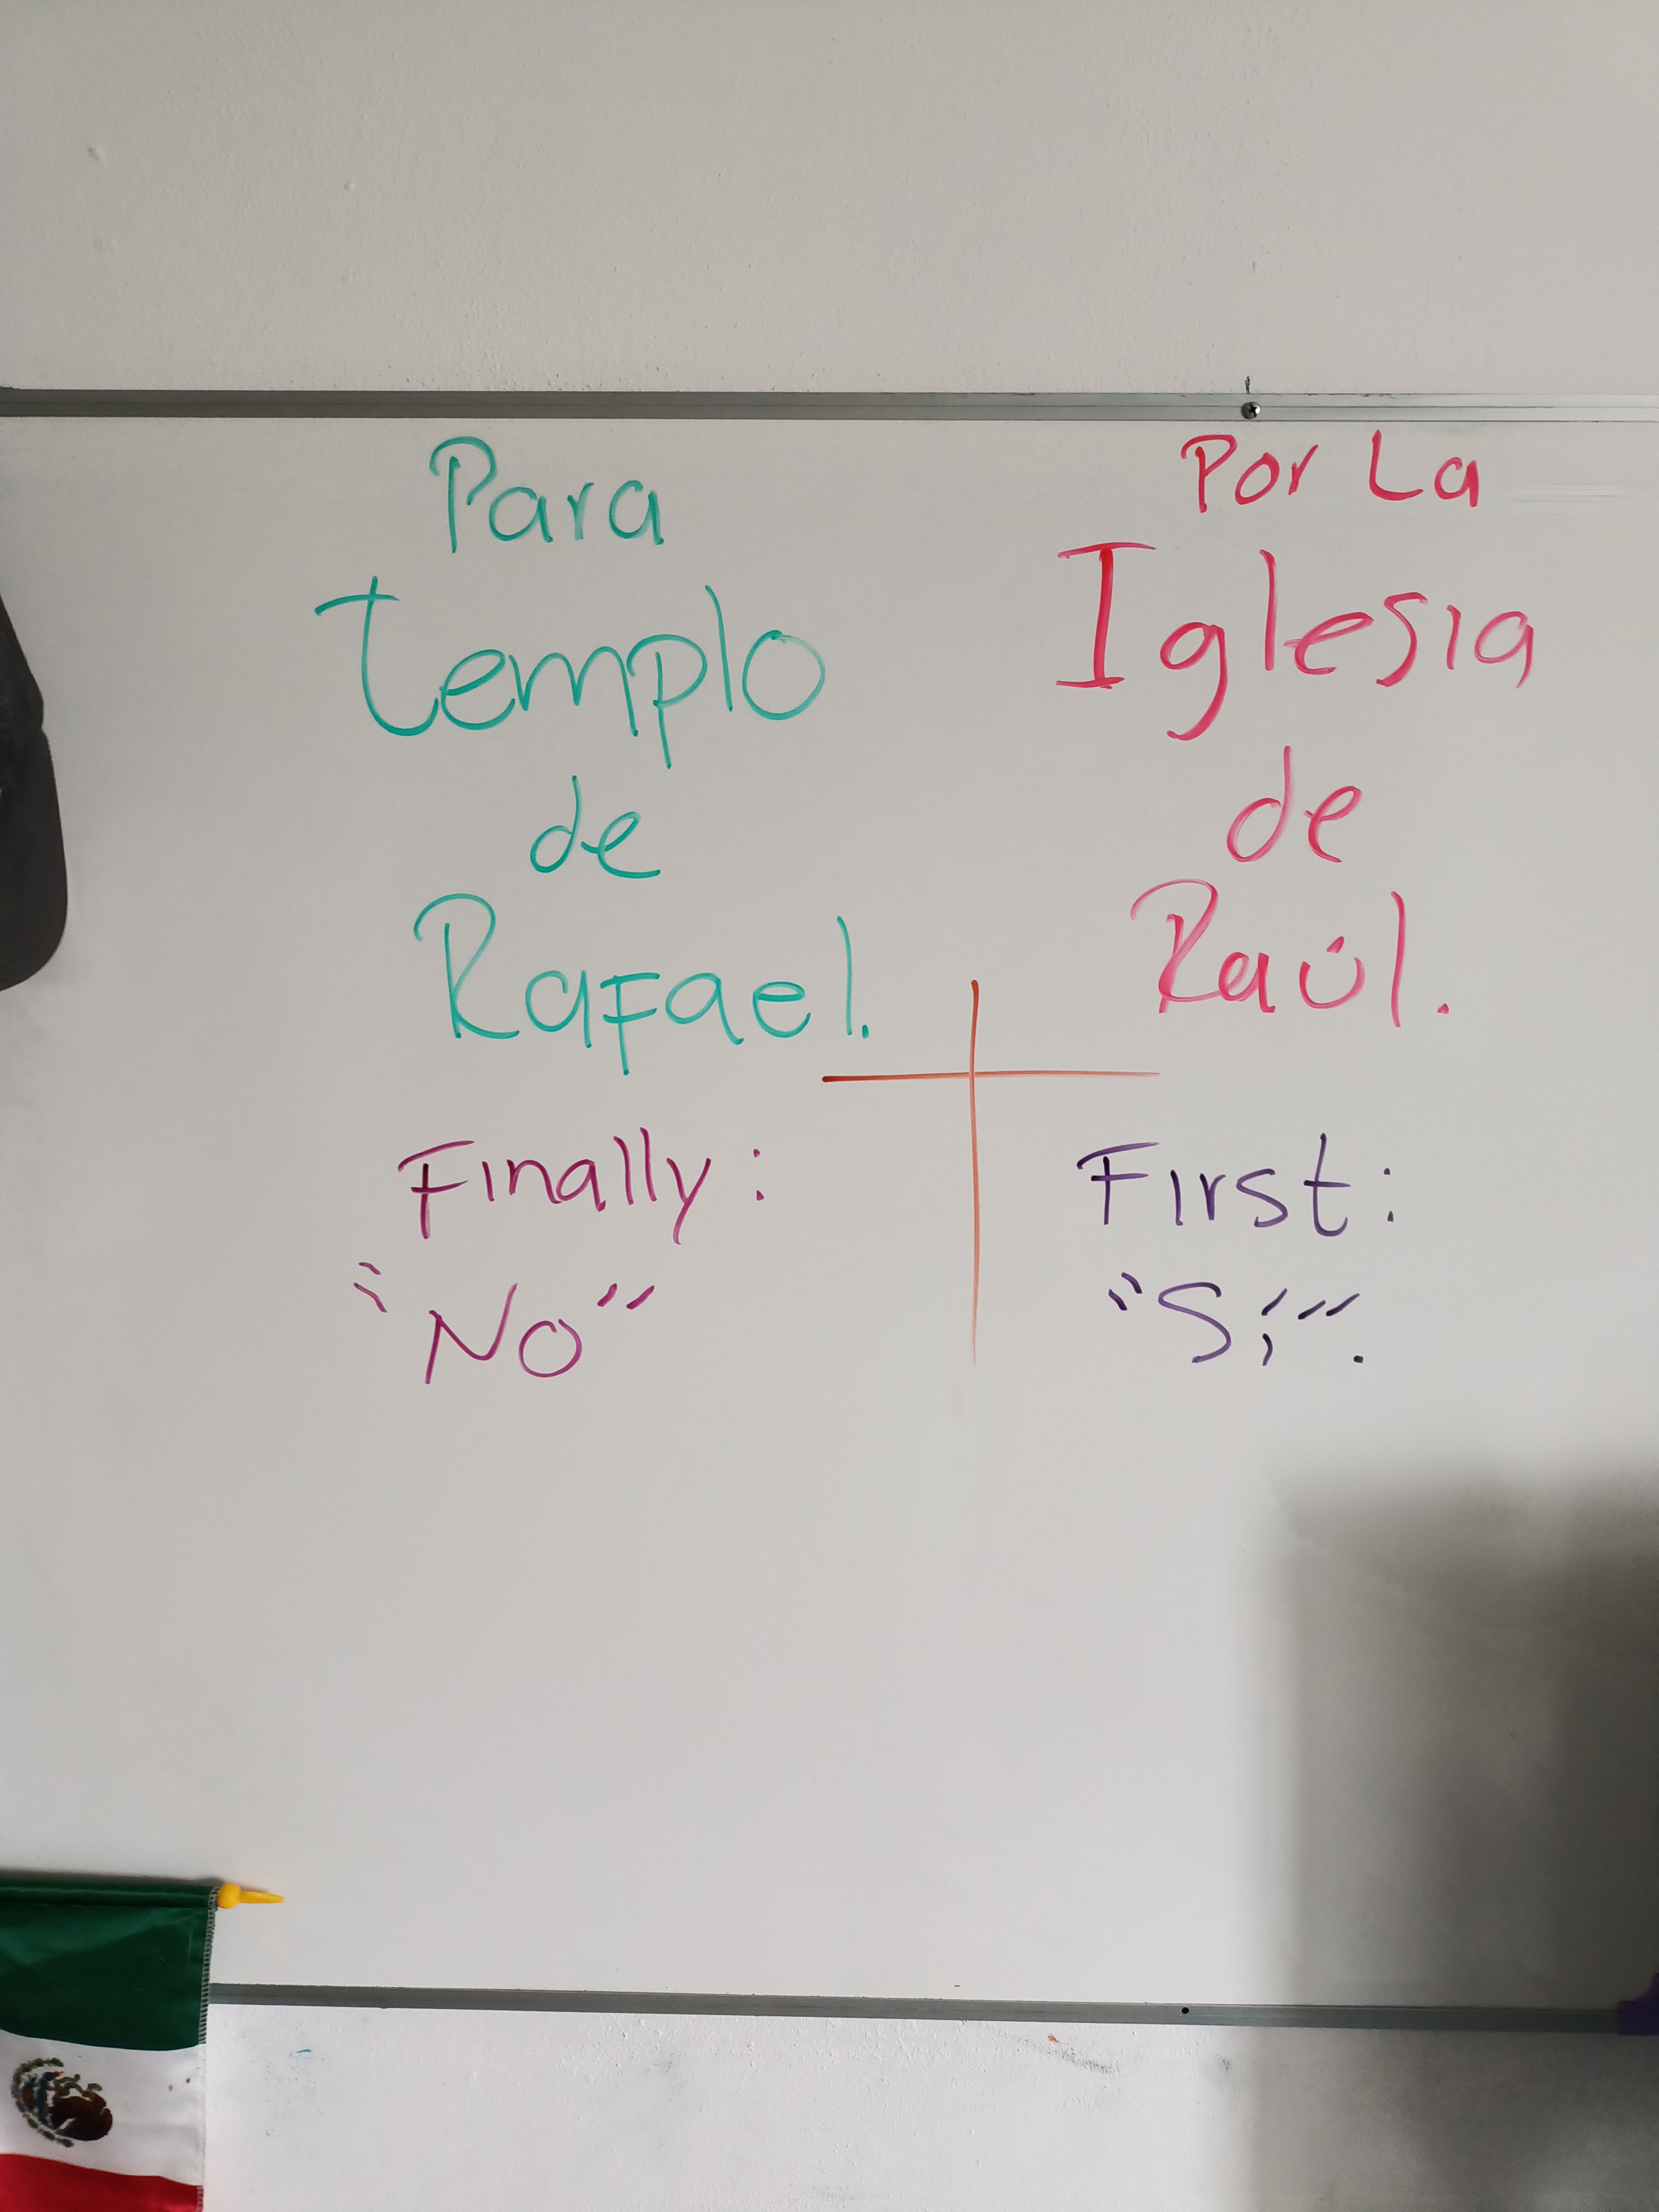 Para
templo
de
Rafael.
Finally:
"No"
Por La
Iglesia
de
Raúl.
First:
"Sí".